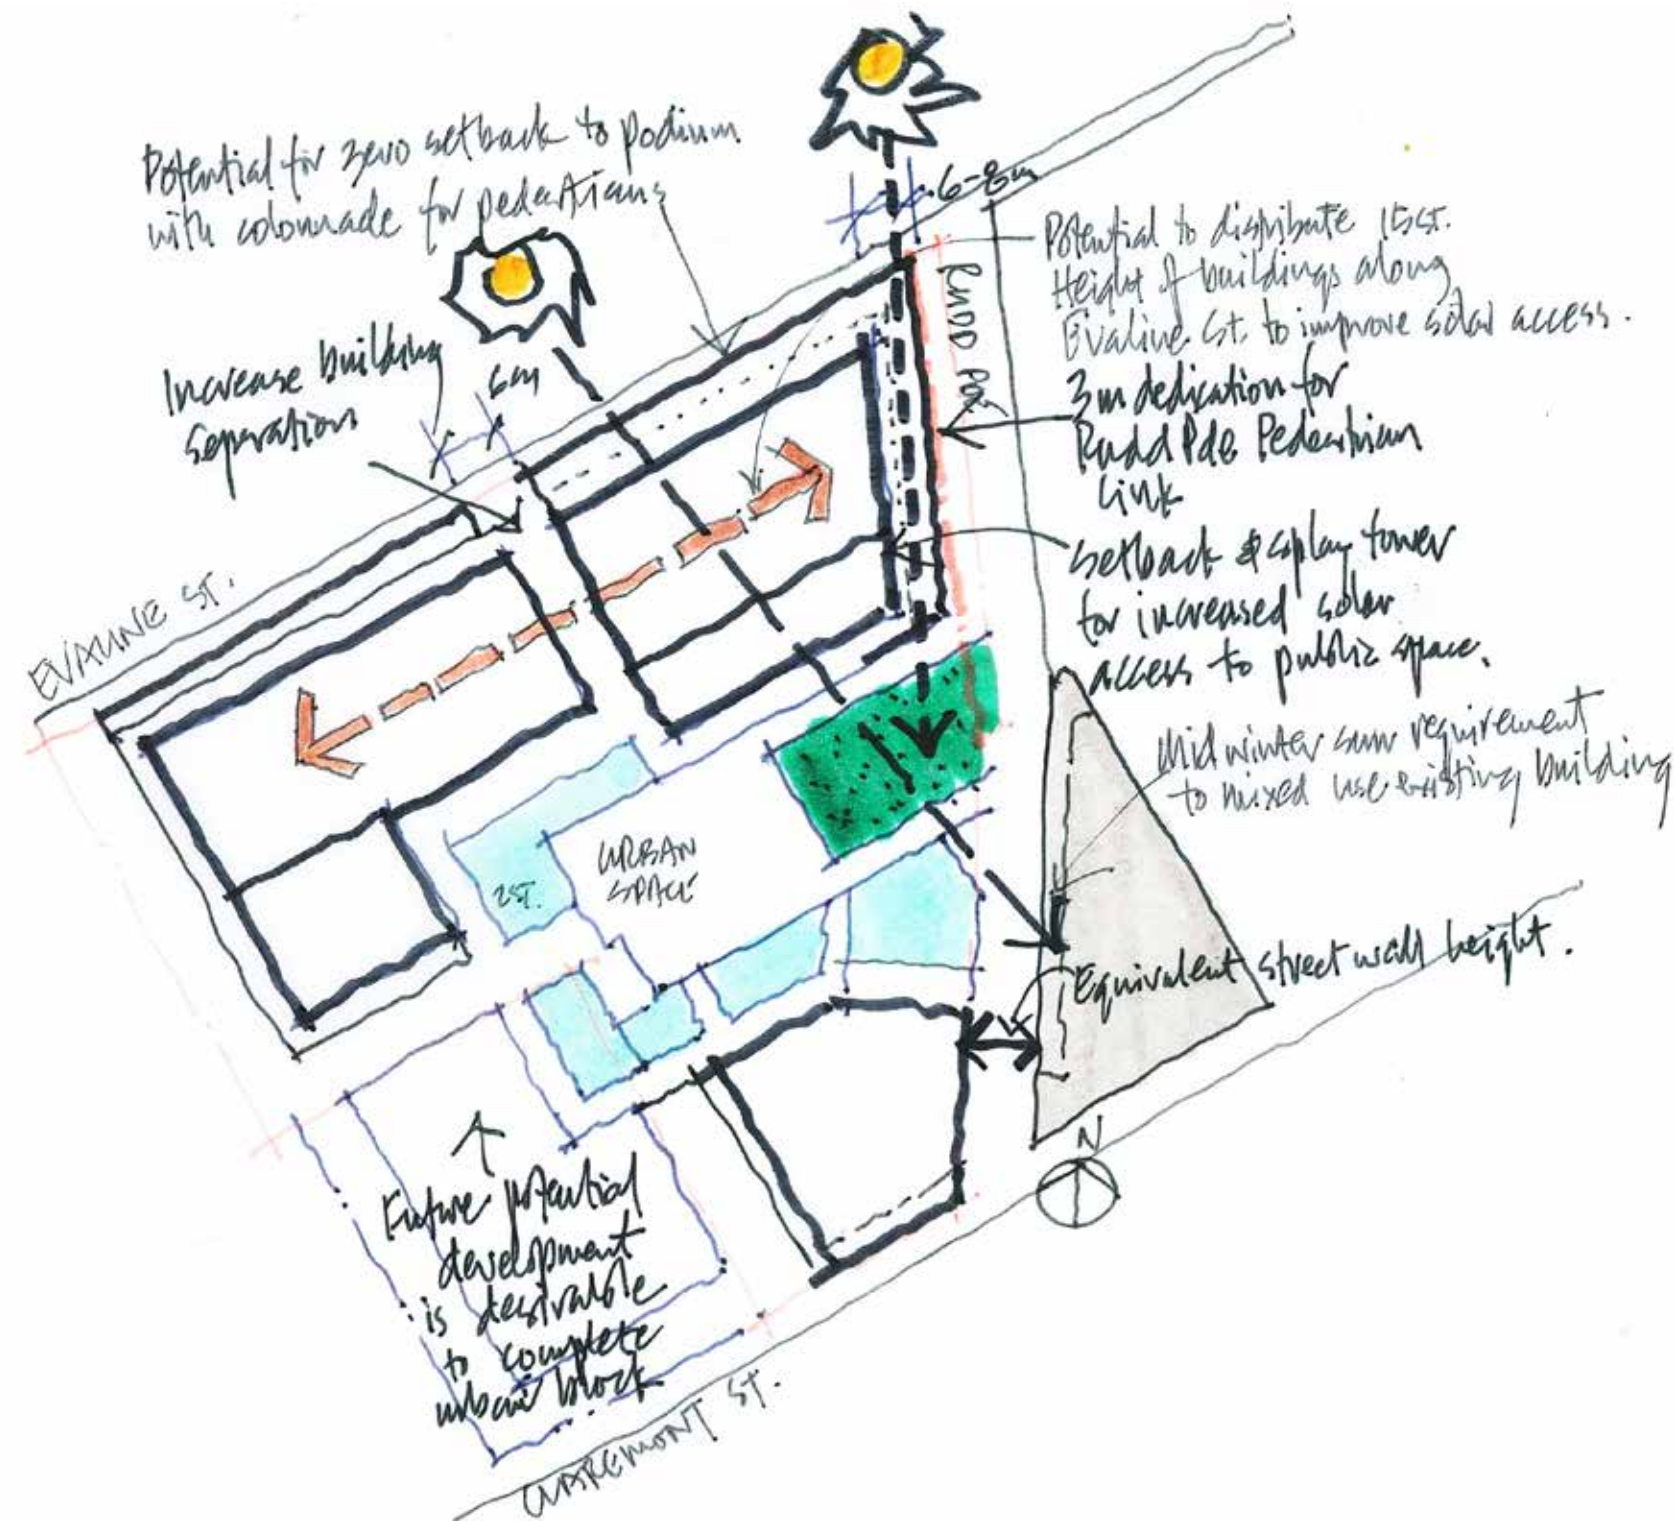 Potential for zero setback to podium
with colonnade for pedestrians
6-8m
Increase building
separation
6m
Potential to distribute 15st.
Height of buildings along
Evaline St. to improve solar access.
RUDD PDE
3m dedication for
Rudd Pde Pedestrian
Link
EVALINE ST.
setback & splay tower
for increased solar
access to public space.
Mid winter sun requirement
to mixed use existing building
URBAN
SPACE
2ST.
Equivalent street wall height.
N
Future potential
development
is desirable
to complete
urban block
CLAREMONT ST.